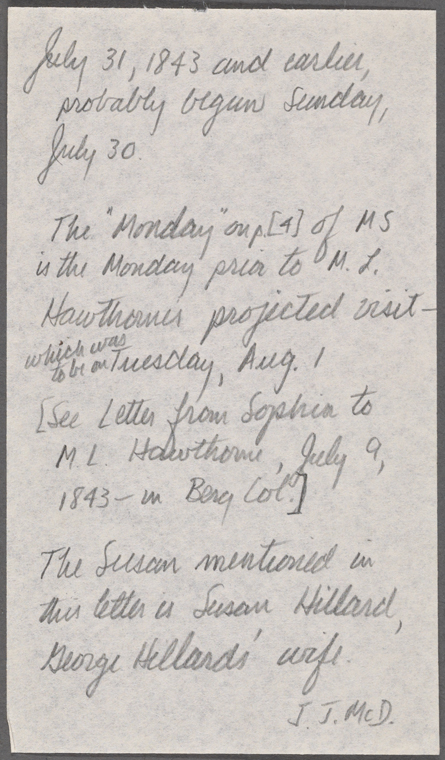 July 31, 1843 and earlier,
probably begun Sunday,
July 30.
The "Monday" on p. [4] of MS
is the Monday prior to M. L.
Hawthornes projected visit—
which was
to be on Tuesday, Aug. 1
[See Letter from Sophia to
M L Hawthorne, July 9,
1843— in Berg Col.]
The Susan mentioned in
this letter is Susan Hillard,
George Hillards' wife.
J. J. McD.